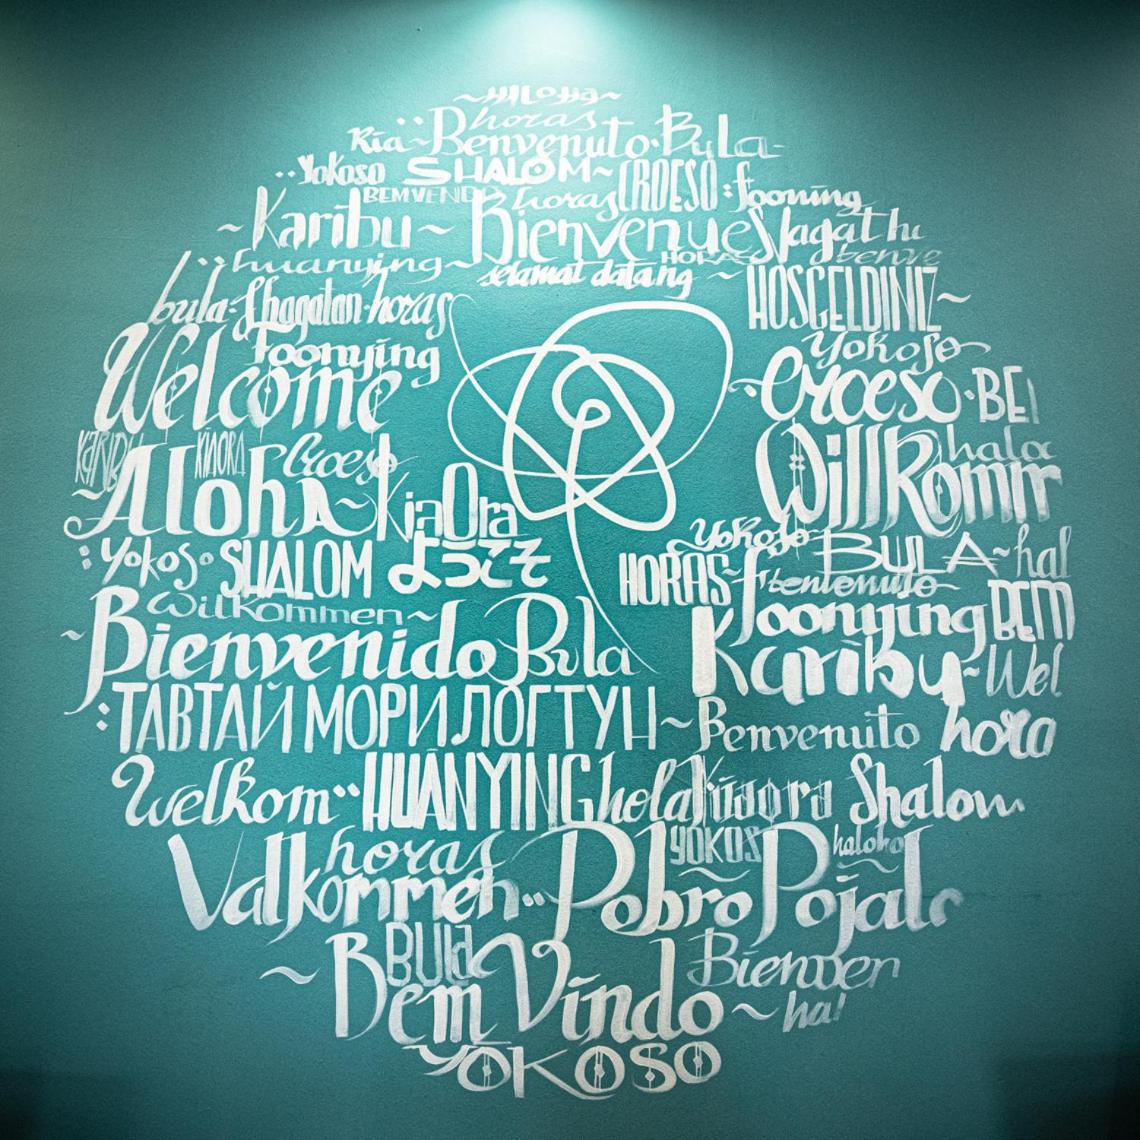 ~ALOHA~
horas
Ria~Benvenuto·Bula-
··Yokoso SHALOM~CROESO:foonying
BEMVENDO horas
~Karibu~Bienvenue Nagat hi
HORAS benve
··huanying~selamat datang~HOSGELDINIZ~
bula-Shagatan·horas
foonying Yokoso
Welcome ~Croeso·BEI
KARIBU KIAORA Croeso Willkomm hala
~Aloha~KiaOra
Yokoso BULA~hal
:Yokoso SHALOM ようこそ HORAS~foonying BEM
Willkommen~ benvenuto
~Bienvenido Bula Karibu~Wel
:ТАВТАЙ МОРИЛОГТУН~Benvenuto hora
Welkom··HUANYING hola Kiaora Shalom
horas YOKOS haloha
Valkommen··Dobro Pojalo
BULA Bienven
~Bem Vindo~ha!
YOKOSO